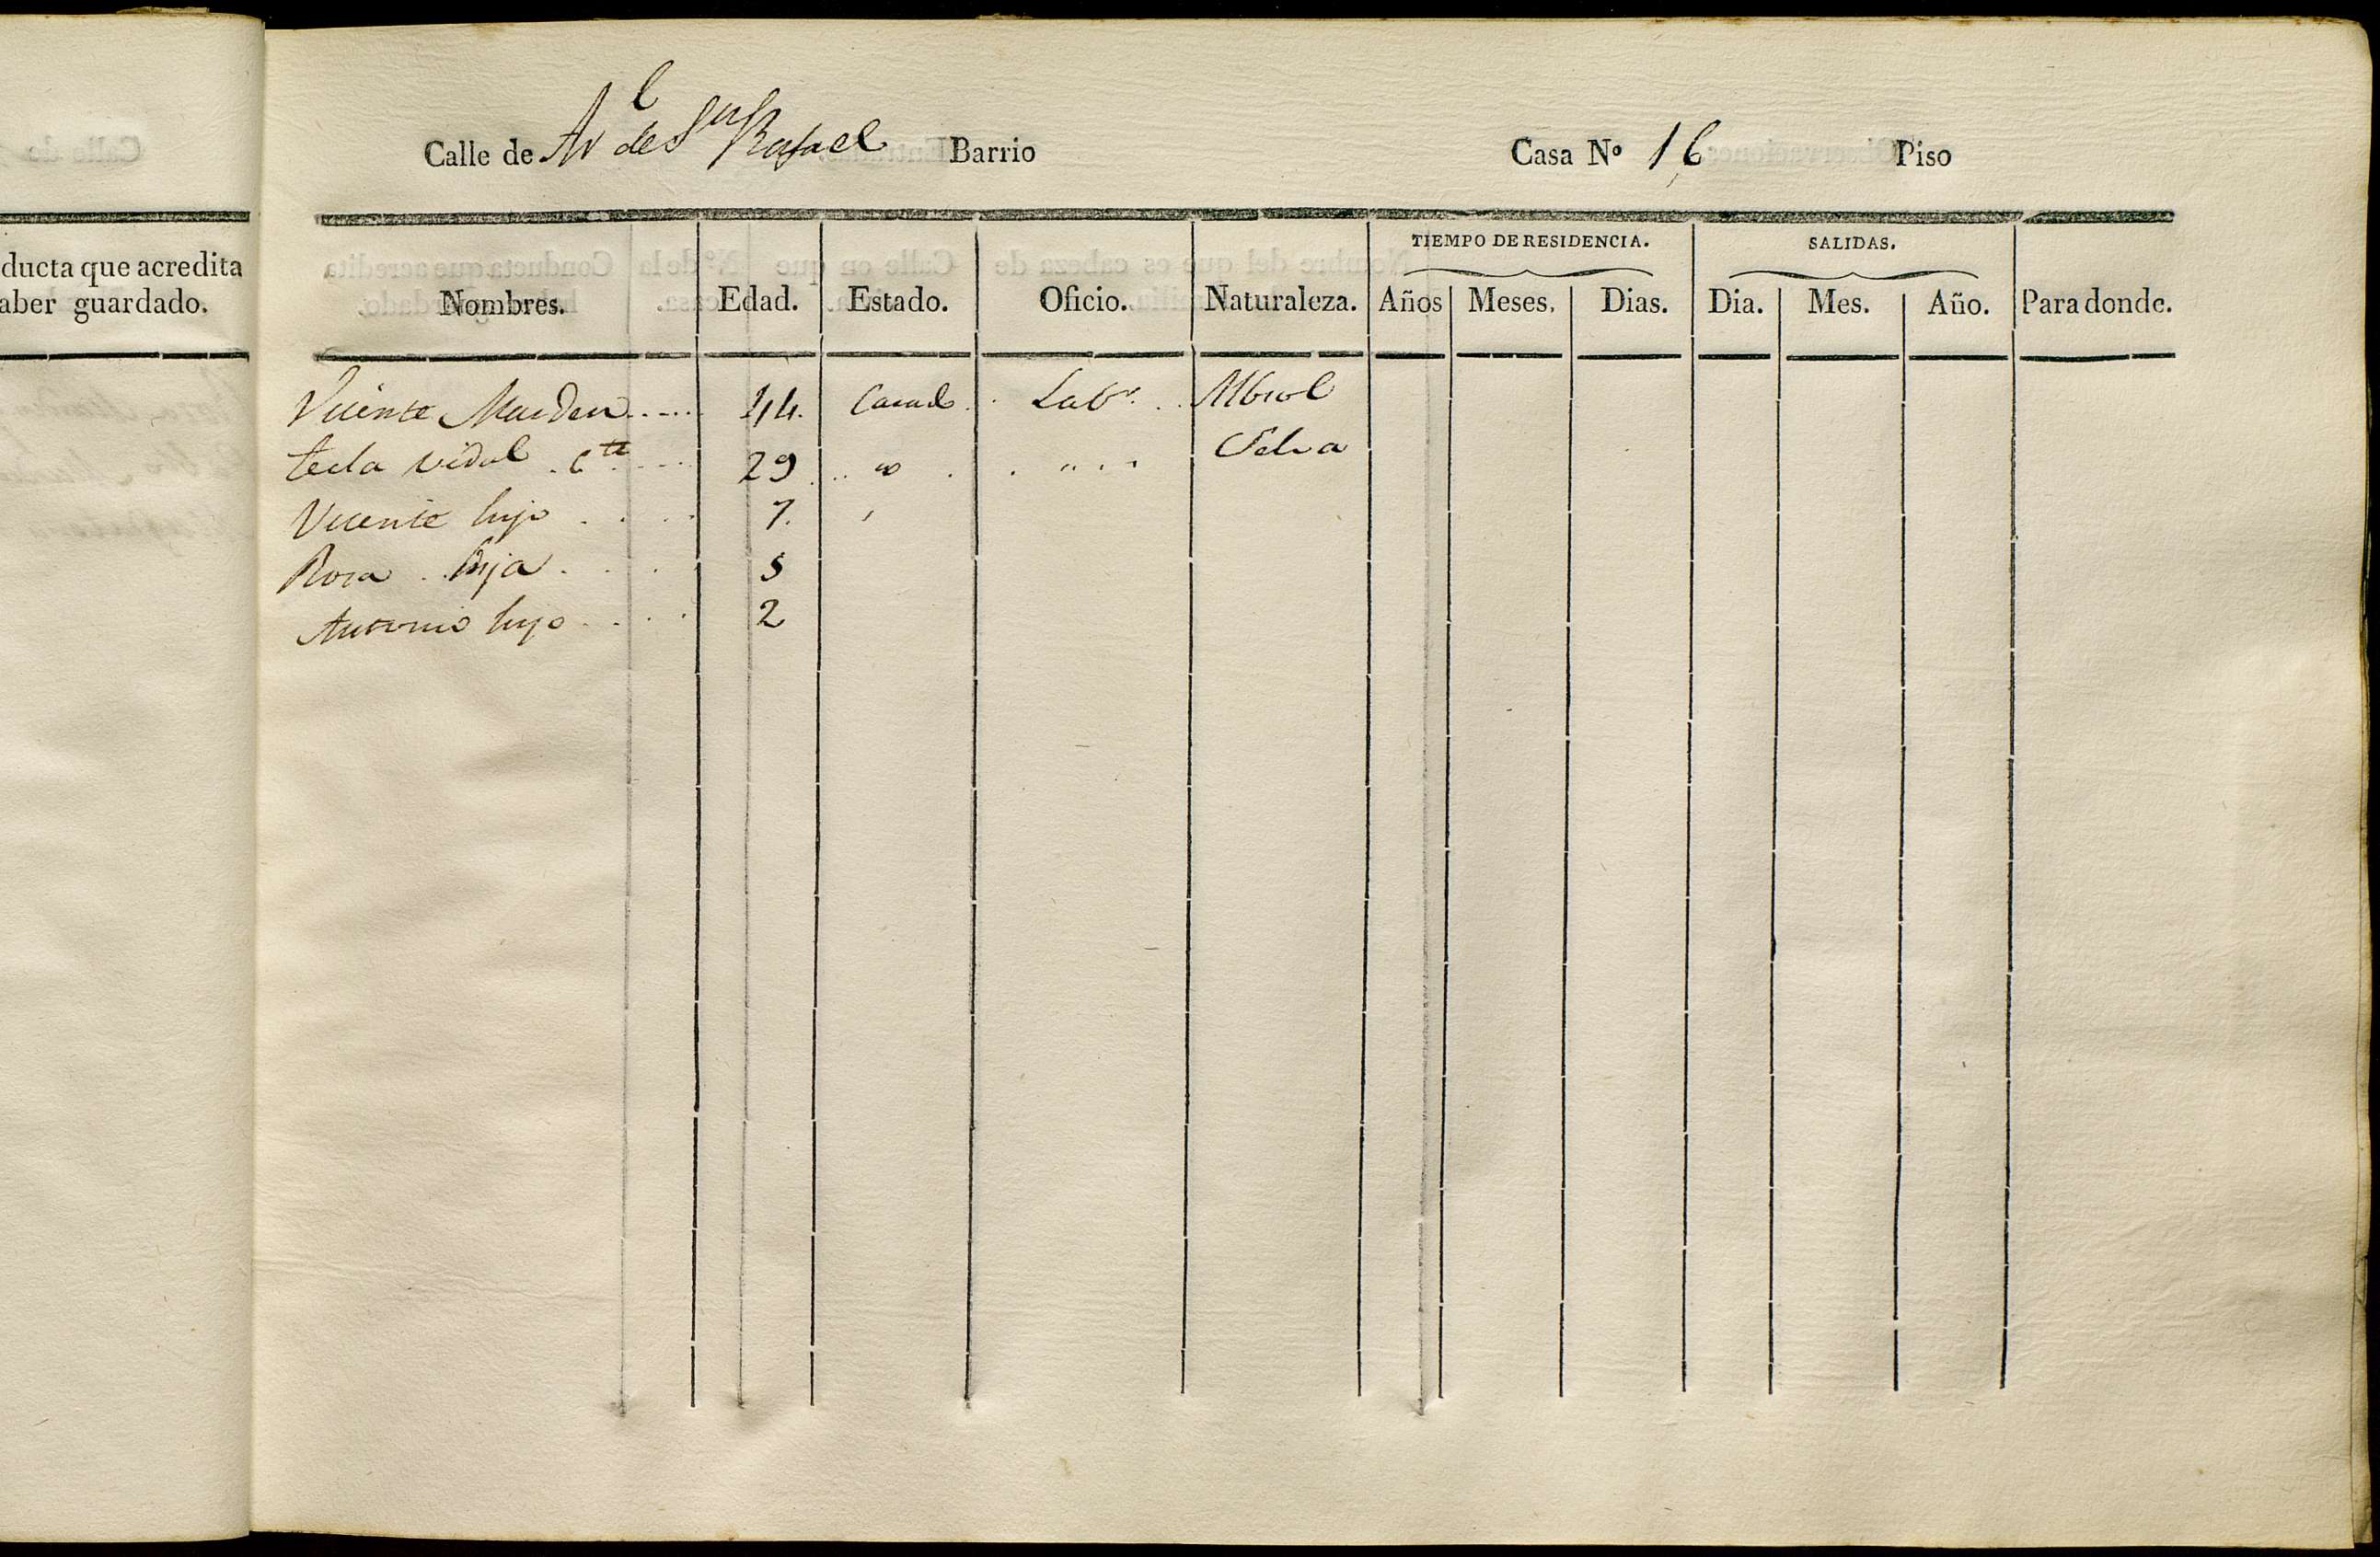 ducta que acredita
aber guardado.
Calle de Arl de Sn Rafael Barrio Casa Nº 16 Piso
TIEMPO DE RESIDENCIA. SALIDAS.
Nombres. Edad. Estado. Oficio. Naturaleza. Años Meses. Dias. Dia. Mes. Año. Para donde.
Vicente 44. Casado Labr.
Tecla Vidal . Cte 29 Selva
Vicente hijo 7.
Rosa hija 5
Antonio hijo 2